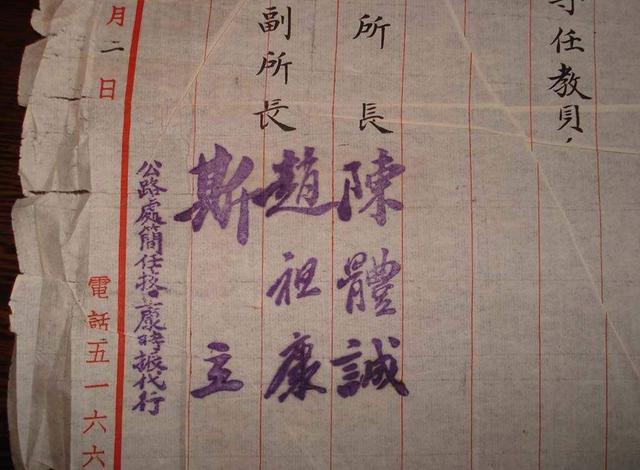 專任教員，
所長
陳體誠
副所長
趙祖康
斯立
公路處簡任技正康時振代行
月二日
電話五一六六